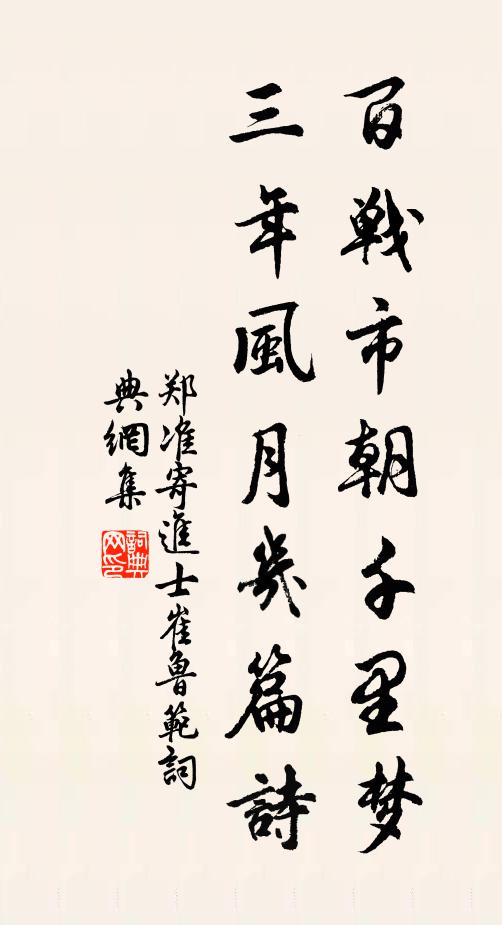 百戦市朝千里梦
三年風月幾篇詩
郑准寄進士崔魯範詞
典網集
詞典网印